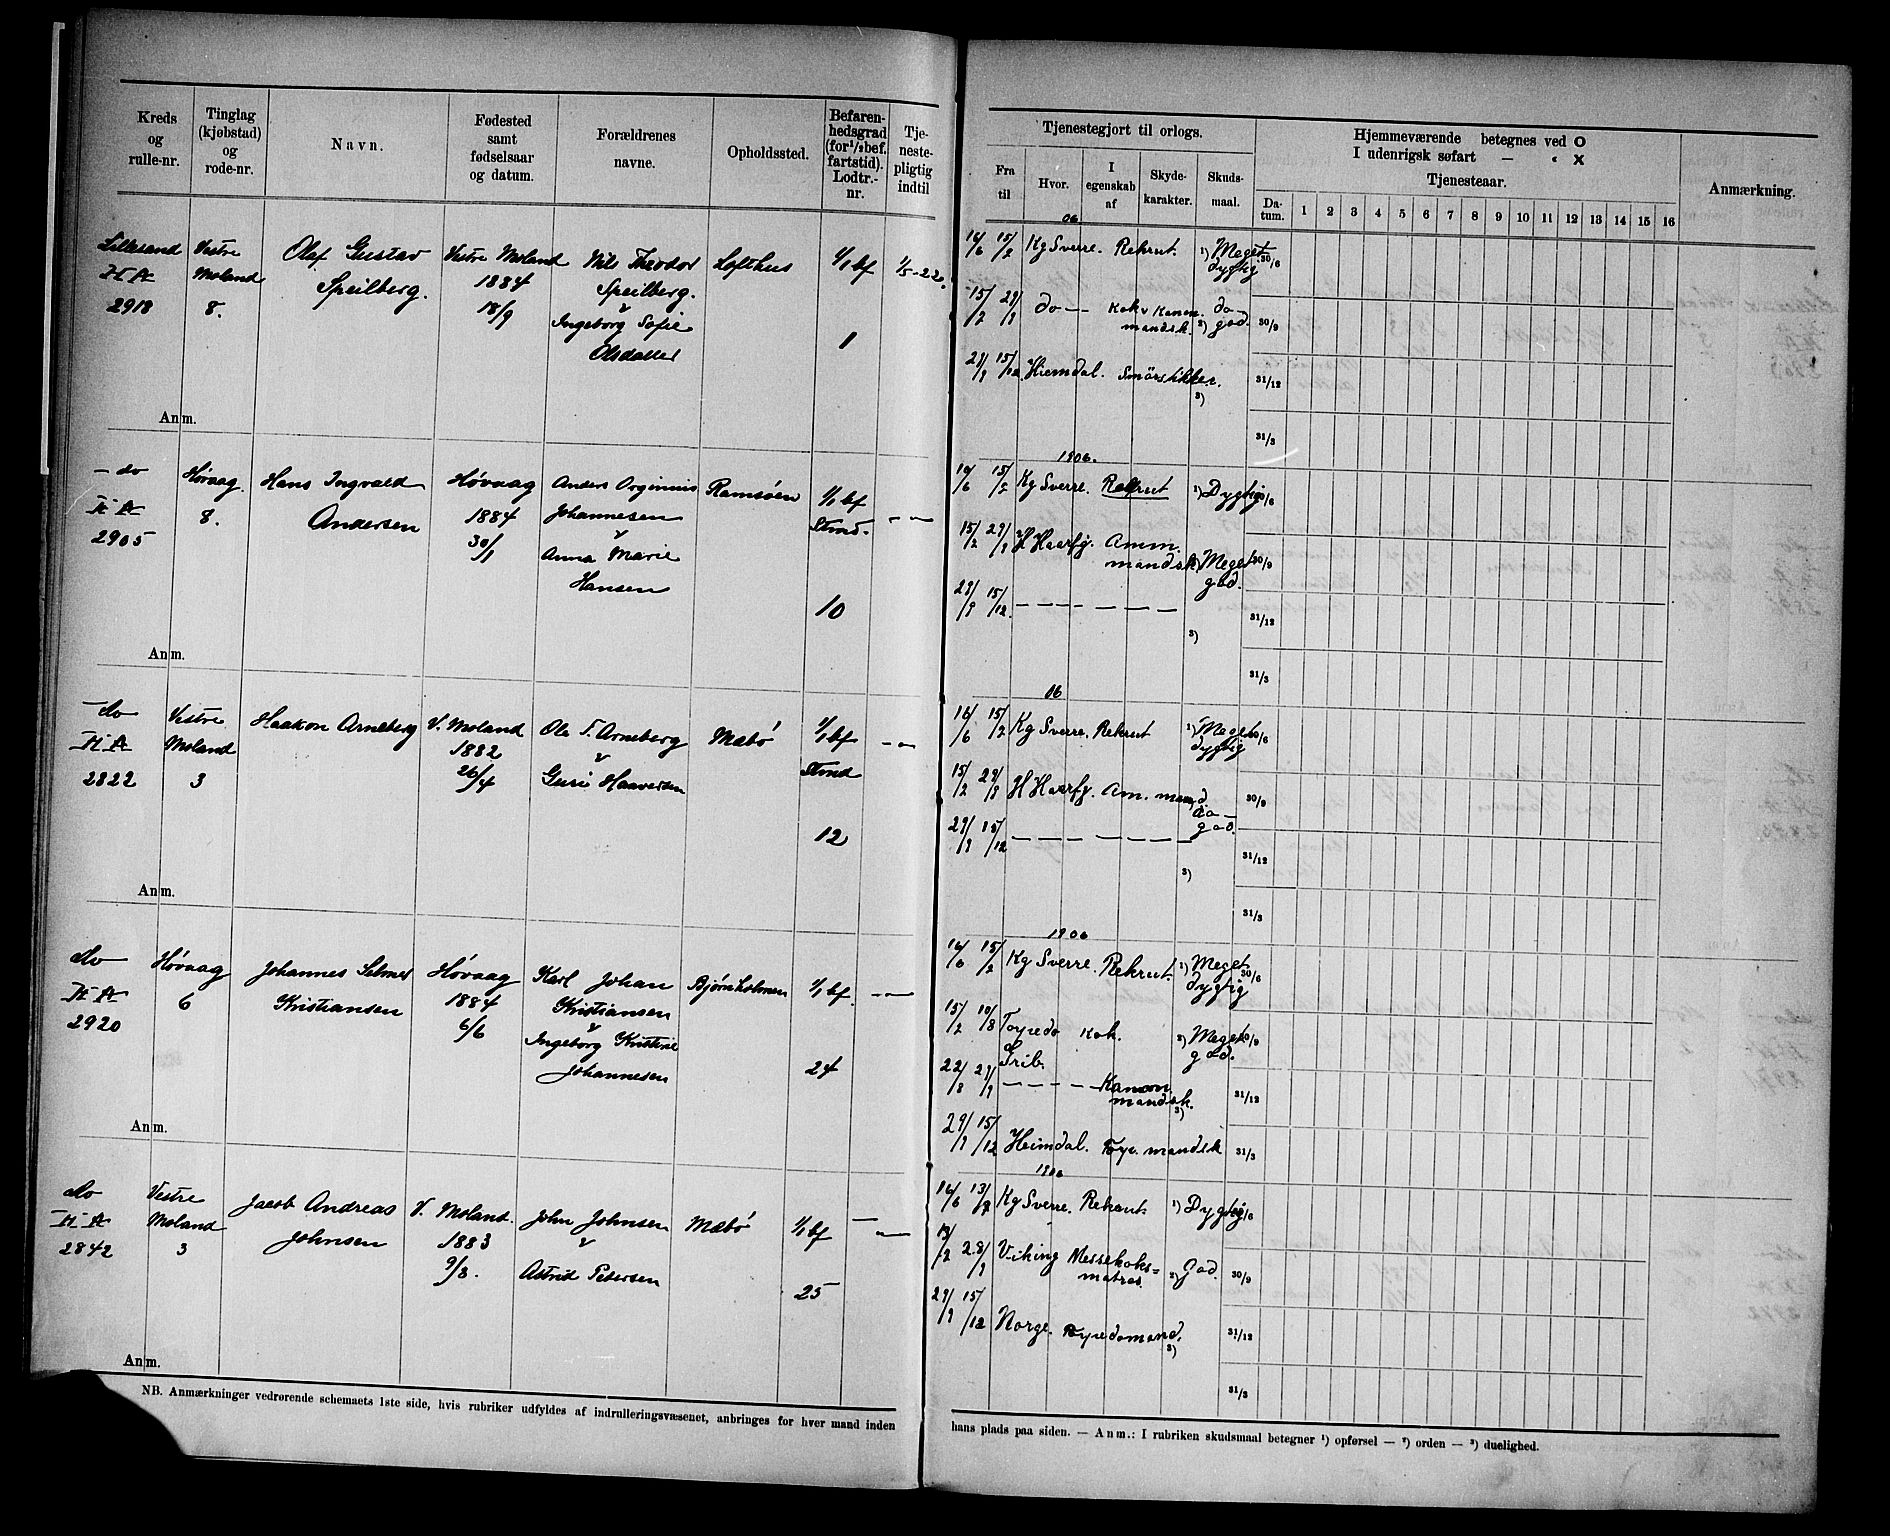 Kreds og rulle-nr.
Tinglag (kjøbstad) og rode-nr.
Navn.
Fødested samt fødselsaar og datum.
Forældrenes navne.
Opholdssted.
Befaren-hedsgrad (for 1/1 bef. fartstid). Lodtr.-nr.
Tje-neste-pligtig indtil
Tjenestegjort til orlogs.
Fra til
Hvor.
I egenskab af
Skyde-karakter.
Skuds-maal.
Hjemmeværende betegnes ved O
I udenrigsk søfart — „ X
Tjenesteaar.
Da-tum. 1 2 3 4 5 6 7 8 9 10 11 12 13 14 15 16
Anmærkning.
Lillesand
2918
Vestre Moland
8.
Olaf Gustav
Speilberg.
Vestre Moland
1884
18/9
Nils Theodor
Speilberg.
v
Ingeborg Sofie
Olsdatter
Lofthus
1/1 bf
1
1/5-22.
06
16/6 15/2 Kg Sverre. Rekrut. 1) Meget dygtig 30/6
15/2 29/9 do — Kok v Kanon. mandsk. 2) do — god. 30/9
29/9 15/12 Hiemdal. Smörstikker. 3) 31/12
31/3
Anm.
— do
2905
Høvaag.
8.
Hans Ingvald
Andersen
Høvaag
1884
30/1
Johannesen
v
Anna Marie
Hansen
Ramsøen
1/1 bf
10
— „ —
1906.
16/6 15/2 Kg Sverre. Rekrut 1) Dygtig 30/6
15/2 29/9 H Haarfg. Amm. mandsk. Meget god. 30/9
29/9 15/12 — — — — — —
3) 31/12
31/3
Anm.
— do
2822
Vestre
Moland
3
Haakon Arneberg
V. Moland
1882
26/4
Ole T. Arneberg
v
Guri Haaversen
Mæbø
1/1 bf
12
— „ —
06
16/6 15/2 Kg Sverre. Rekrut 1) Meget dygtig 30/6
15/2 29/9 H Haarfg. Am. mand. do — god. 30/9
29/9 15/12 — — — — — —
3) 31/12
31/3
Anm.
do
2920
Høvaag
6
Johannes Selmer
Kristiansen
Høvaag
1884
6/6
Karl Johan
Kristiansen
v
Ingeborg Kristine
Johannesen
Bjørnholmen
1/1 bf.
24
— „ —
1906
16/6 15/2 Kg Sverre. Rekrut. 1) Meget dygtig 30/6
15/2 10/8 Torpedo Kok. 2) Meget god. 30/9
22/8 29/9 — — — — Kanon mandsk. 3) 31/12
29/9 15/12 Heimdal. Fyr. mandsk 31/3
Anm.
do
2842
Vestre
Moland
3
Jacob Andreas
Johnsen
V. Moland.
1883
9/8.
John Johnsen
v
Astrid Petersen
Mæbø
1/1 bf
25
— „ —
1906
16/6 13/2 Kg Sverre. Rekrut. 1) Dygtig 30/6
13/2 28/9 Viking Messekoks= matros. 2) God. 30/9
29/9 15/12 Norge. Torpedomand. 3) 31/12
31/3
Anm.
NB. Anmærkninger vedrørende schemaets 1ste side, hvis rubriker udfyldes af indrulleringsvæsenet, anbringes for hver mand inden
hans plads paa siden. — Anm.: I rubriken skudsmaal betegner ¹) opførsel — ²) orden — ³) duelighed.